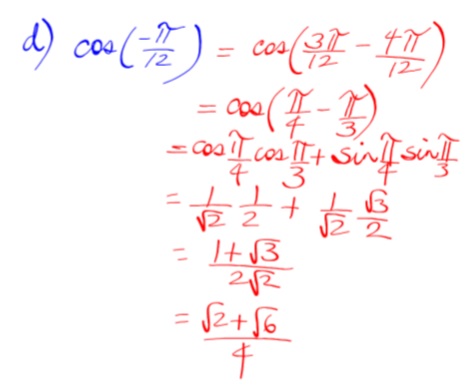 d) cos(-π/12) = cos(3π/12 - 4π/12)
= cos(π/4 - π/3)
= cos π/4 cos π/3 + sin π/4 sin π/3
= 1/√2 1/2 + 1/√2 √3/2
= (1+√3)/(2√2)
= (√2+√6)/4